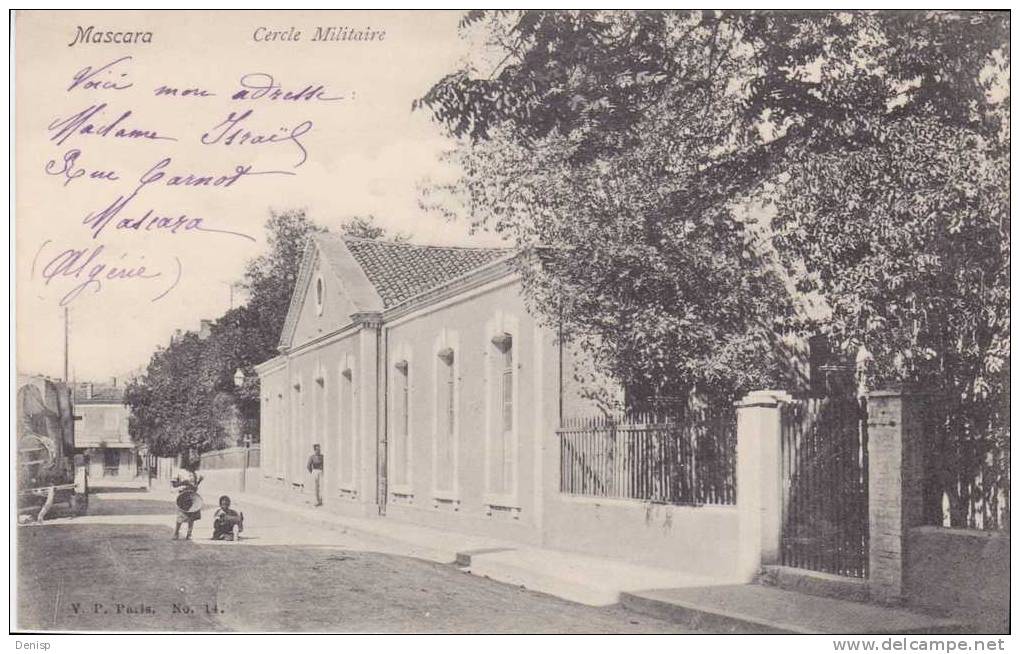 Mascara
Cercle Militaire
Voici mon adresse :
Madame Israël
Rue Carnot
Mascara
(Algérie)
V. P. Paris. No. 14.
Denisp
http://www.delcampe.net